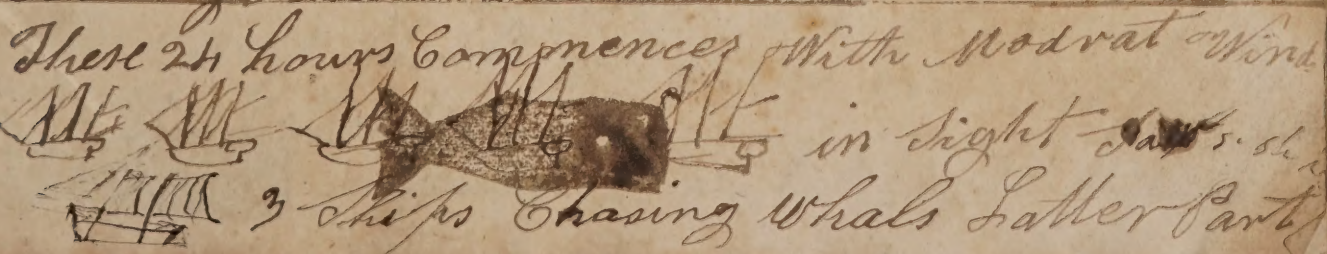 These 24 hours Commences With Modrat Wind
in Sight
3 Ships Chasing Whals Latter Part